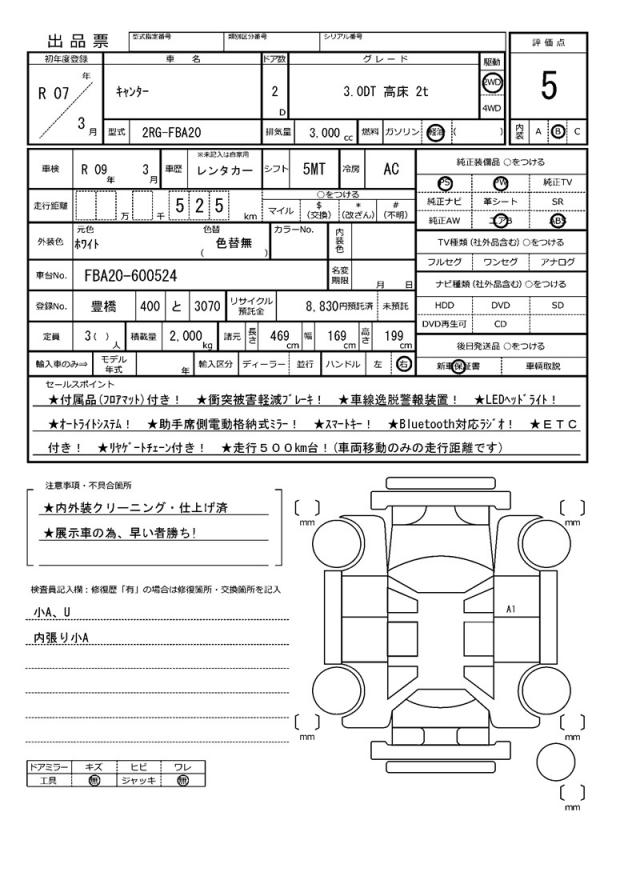 出品票
型式指定番号 類別区分番号 シリアル番号
評価点
5
初年度登録 車名 ドア数 グレード 駆動
R 07 年 3 月
キャンター 2 D 3.0DT 高床 2t 2WD 4WD
型式 2RG-FBA20 排気量 3,000 cc 燃料 ガソリン 軽油 ( )
内装 A B C
車検 R 09 年 3 月 車歴 ※未記入は自家用 レンタカー シフト 5MT 冷房 AC
走行距離 万 千 525 km
○をつける
マイル $(交換) *(改ざん) #(不明)
外装色 元色 ホワイト 色替 ( 色替無 ) カラーNo. 内装色
車台No. FBA20-600524 名変期限 月 日
登録No. 豊橋 400 と 3070 リサイクル預託金 8,830円預託済 未預託
定員 3( ) 人 積載量 2,000 kg 諸元 長さ 469 cm 幅 169 cm 高さ 199 cm
輸入車のみ⇒ モデル年式 年 輸入区分 ディーラー 並行 ハンドル 左 右
純正装備品 ○をつける
PS PW 純正TV
純正ナビ 革シート SR
純正AW エアB ABS
TV種類(社外品含む) ○をつける
フルセグ ワンセグ アナログ
ナビ種類(社外品含む) ○をつける
HDD DVD SD
DVD再生可 CD
後日発送品 ○をつける
新車保証書 車輌取説
セールスポイント
★付属品(フロアマット)付き! ★衝突被害軽減ブレーキ! ★車線逸脱警報装置! ★LEDヘッドライト!
★オートライトシステム! ★助手席側電動格納式ミラー! ★スマートキー! ★Bluetooth対応ラジオ! ★ETC
付き! ★リヤゲートチェーン付き! ★走行500km台!(車両移動のみの走行距離です)
注意事項・不具合箇所
★内外装クリーニング・仕上げ済
★展示車の為、早い者勝ち!
検査員記入欄:修復歴「有」の場合は修復箇所・交換箇所を記入
小A、U
内張り小A
ドアミラー キズ ヒビ ワレ
工具 無 ジャッキ 無
[ ] mm
[ ] mm
A1
[ ] mm
[ ] mm
[ ] mm